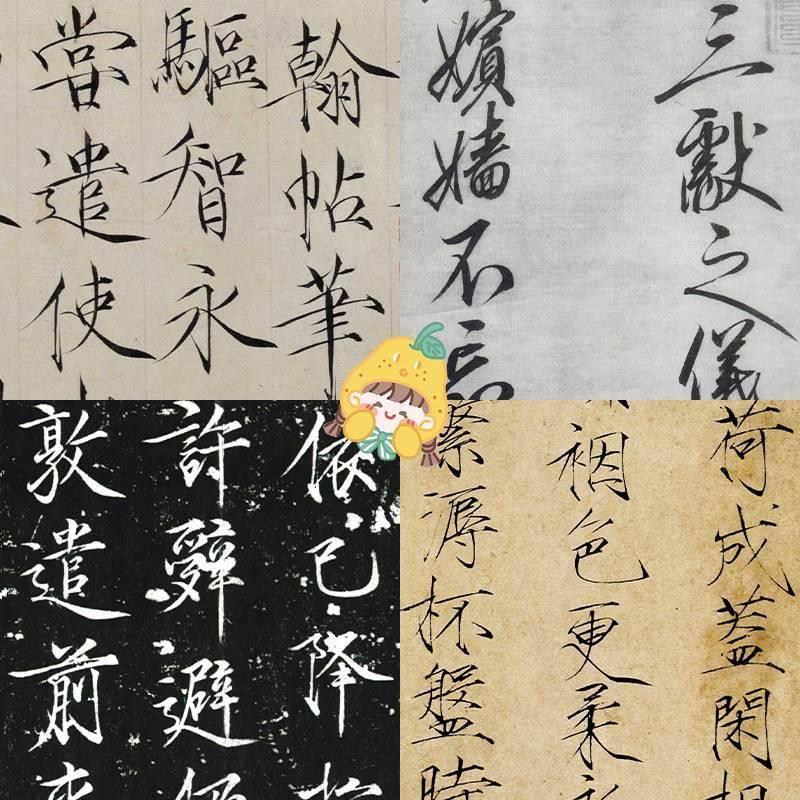 翰帖筆
驅智永
當遣使
三獻之儀
嬪嬙不忘
依已降
許辭避
敦遣前
荷成蓋閑
裀色更柔
縈溽杯盤時